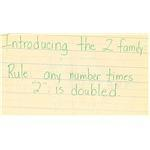 Introducing the 2 family.
Rule any number times
"2" is doubled.